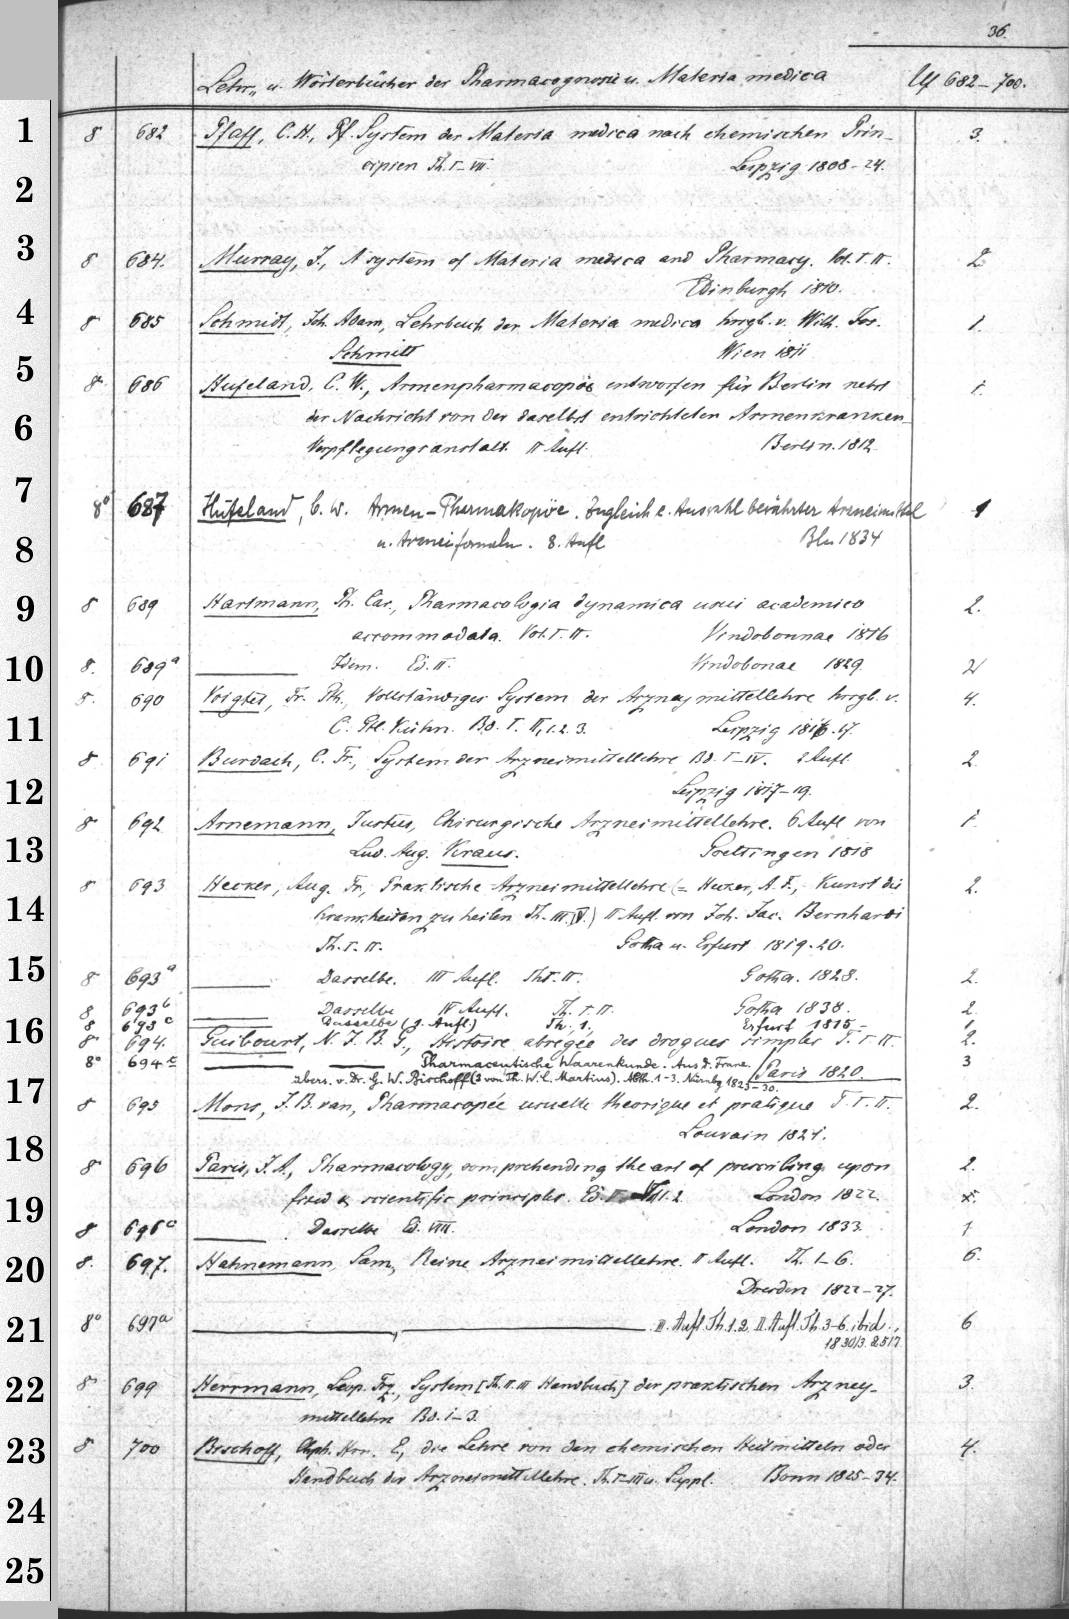 36.
Lehr- u. Wörterbücher der Pharmacognosie u. Materia medica Uf 682-700.
1
8 682 Pfaff, C. H., Pf. System der Materia medica nach chemischen Prin- 3.
cipien Th. I-VII. Leipzig 1808-24.
2
3
8 684. Murray, J., A system of Materia medica and Pharmacy. Vol. I. II. 2
Edinburgh 1810.
4
8 685 Schmidt, Joh. Adam, Lehrbuch der Materia medica hrsgb. v. Wilh. Jos. 1.
Schmitt Wien 1811
5
8 686 Hufeland, C. W., Armenpharmacopöe entworfen für Berlin nebst 1.
der Nachricht von der daselbst errichteten Armenkranken-
6
Verpflegungsanstalt. II Aufl. Berlin. 1812
7
8° 687 Hufeland, C. W. Armen-Pharmakopöe. Zugleich e. Auswahl bewährter Arzneimittel 1
8
u. Arzneiformeln. 8. Aufl Bln 1834
9
8 689 Hartmann, Ph. Car., Pharmacologia dynamica usui academico 2.
accommodata. Vol. I. II. Vindobonnae 1816
10
8. 689a Idem. Ed. II. Vindobonae 1829. 2
8. 690 Voigtel, Fr. Gtb., Vollständiges System der Arzneymittellehre hrsgb. v. 4.
11
C. Gtl. Kühn. Bd. I. II, 1. 2. 3. Leipzig 1816-17.
8 691 Burdach, C. Fr., System der Arzneimittellehre Bd. I-IV. 2 Aufl. 2
12
Leipzig 1817-19.
8 692 Arnemann, Justus, Chirurgische Arzneimittellehre. 6 Aufl von 1.
13
Lud. Aug. Kraus. Goettingen 1818
8 693 Hecker, Aug. Fr., Praktische Arzneimittellehre (= Hecker, A. F., Kunst die 2.
14
Krankheiten zu heilen Th. III. IV.) II Aufl. von Joh. Jac. Bernhardi
Th. I. II. Gotha u. Erfurt 1819-20.
15
8 693a Dasselbe. III Aufl. Th. I. II. Gotha. 1828. 2.
8 693b Dasselbe IV Aufl. Th. I. II. Gotha 1838. 2.
8 693c Dasselbe (3. Aufl) Th. 1. Erfurt 1815 1
16
8° 694. Guibourt, N. J. B. G., Histoire abregée des drogues simples T. I. II. 2.
8° 694a Pharmaceutische Waarenkunde. Aus d. Franz. Paris 1820. 3
übers. v. Dr. G. W. Bischoff (3 von Th. W. C. Martius). Abth. 1-3. Nürnbg 1823-30.
17
8 695 Mons, J. B. van, Pharmacopée usuelle theorique et pratique T. I. II. 2.
Louvain 1821.
18
8 696 Paris, J. A., Pharmacology, comprehending the art of prescribing upon 2.
fixed & scientific principles. Ed. VI 1. 2 London 1822.
19
8 696a Dasselbe Ed. VIII. London 1833 1
20
8. 697. Hahnemann, Sam., Reine Arzneimittellehre. II Aufl. Th. 1-6. 6.
Dresden 1822-27.
21
8° 697a III. Aufl. Th. 1. 2, II. Aufl. Th. 3-6. ibid. 6
1830/3. 25/7
22
8° 699 Herrmann, Leop. Frz., System [Th. II. III Handbuch] der praktischen Arzney- 3.
mittellehre Bd. 1-3.
23
8 700 Bischoff, Chph. Hnr. E., die Lehre von den chemischen Heilmitteln oder 4.
Handbuch der Arzneimittellehre. Th. I-III u. Suppl. Bonn 1825-34.
24
25